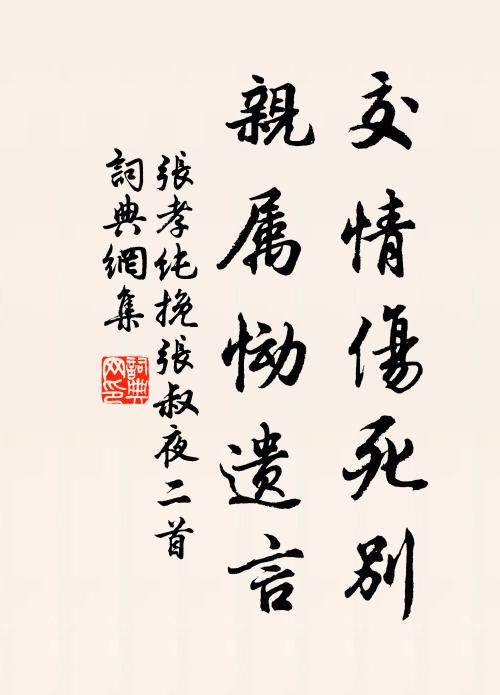 交情傷死別
親属恸遗言
張孝纯挽張叔夜二首
詞典網集
詞典网印